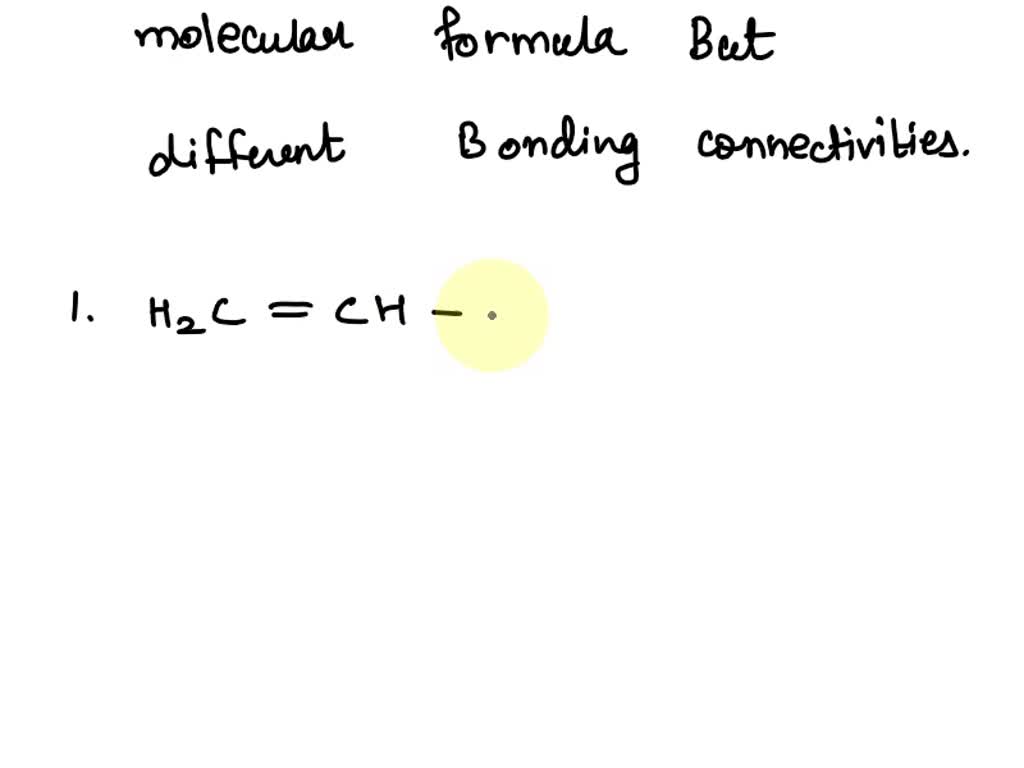 molecular formula But
different Bonding connectivities.
1. H₂C = CH -